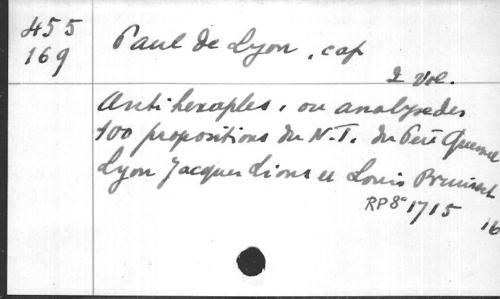 455
169
Paul de Lyon, cap
2 Vol.
Antihexaples, ou analyse des
100 propositions du N.T. du Père Quesnel
Lyon Jacques Lions et Louis Bruisset
RP 8° 1715
16